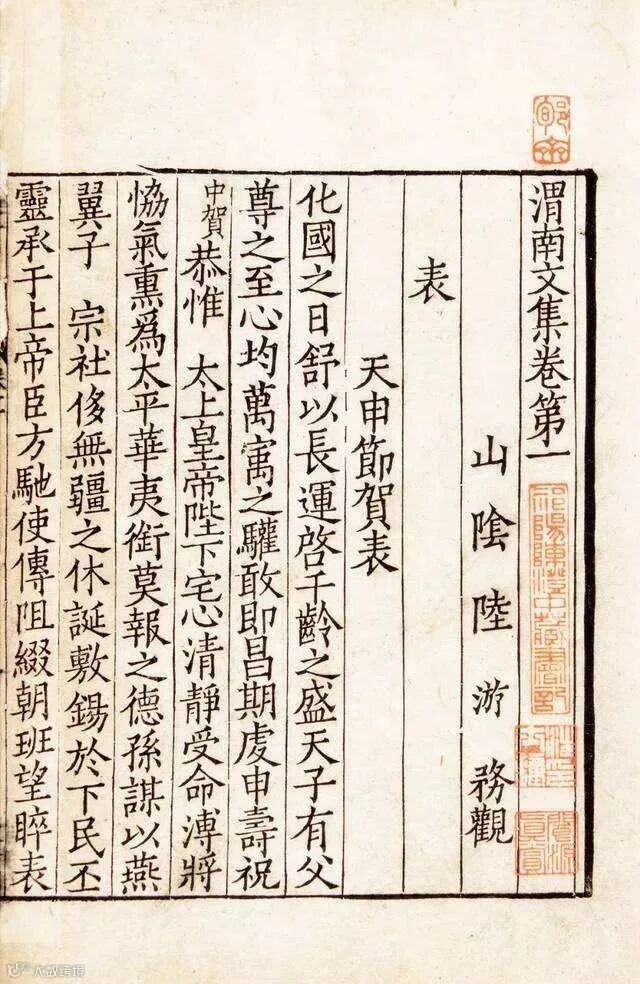 渭南文集卷第一
山陰陸游務觀
表
天申節賀表
化國之日舒以長運啓千齡之盛天子有父
尊之至心均萬㝢之驩敢即昌期虔申壽祝
中賀恭惟 太上皇帝陛下宅心清靜受命溥將
恊氣熏爲太平華夷銜莫報之德孫謀以燕
翼子 宗社侈無疆之休誕敷錫於下民丕
靈承于上帝臣方馳使傳阻綴朝班望睟表
祁陽陳澄中藏書記
大数跨境